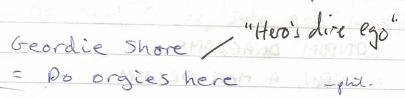 "Hero's dire ego"
Geordie Shore /
= Do orgies here
-phil.